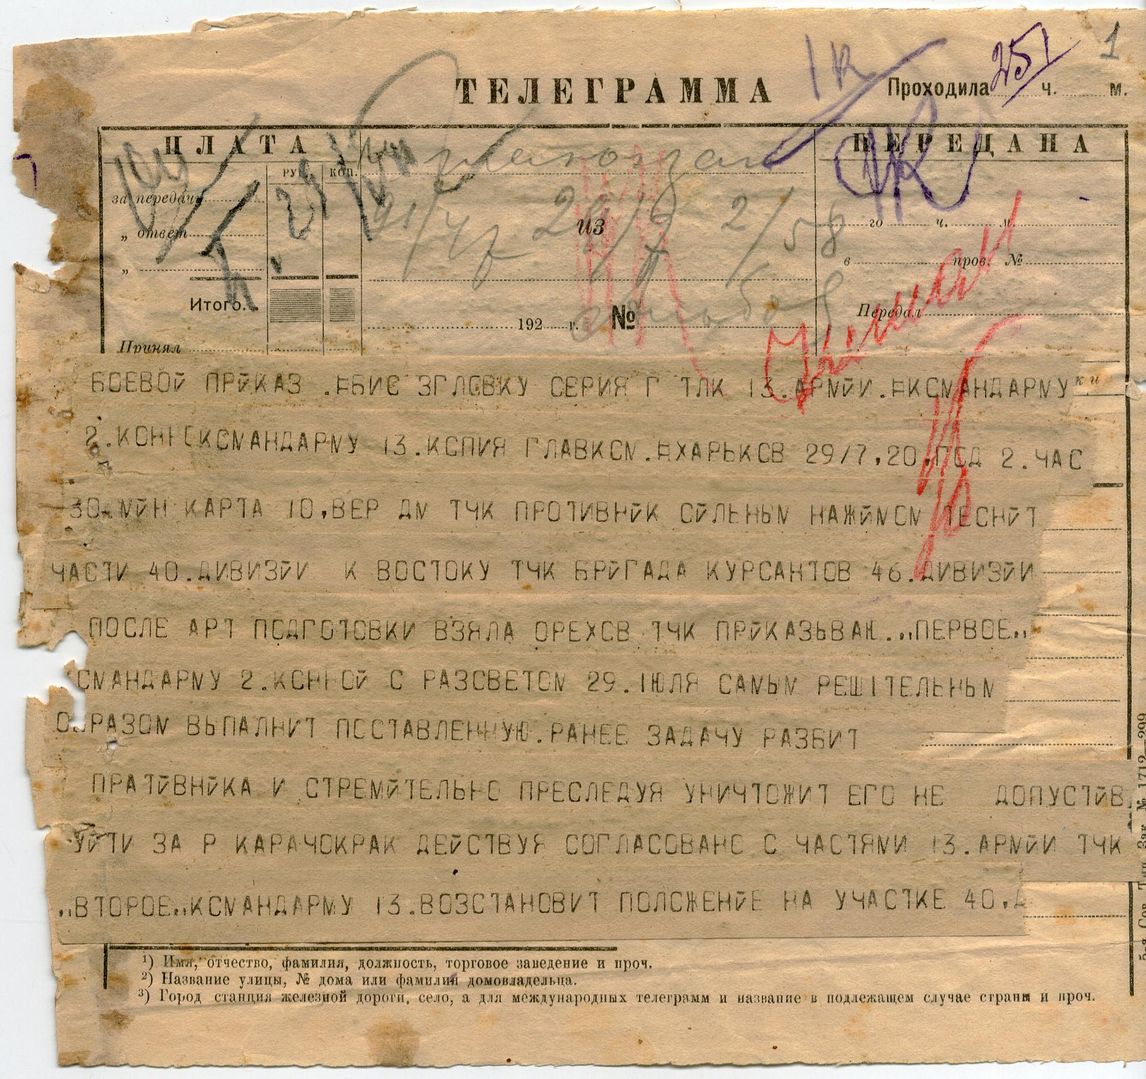 1
ТЕЛЕГРАММА
Проходила 251 ч. м.
ПЛАТА
ПЕРЕДАНА
РУБ. КОП.
за передачу
„ ответ
„
Итого.
Принял
из
192 г. №
21/7 2/58
го ч. м.
в пров. №
Передал
БОЕВОЙ ПРИКАЗ . БИС ЗГЛОВКУ СЕРИЯ Г ТЛК 13.АРМИИ. КОМАНДАРМУ
2.КОН КОМАНДАРМУ 13.КОПИЯ ГЛАВКОМ. ХАРЬКОВ 29/7,20, ПОД 2.ЧАС
30.МИН КАРТА 10,ВЕР ДМ ТЧК ПРОТИВНИК СИЛЬНЫМ НАЖИМОМ ТЕСНИТ
ЧАСТИ 40.ДИВИЗИИ К ВОСТОКУ ТЧК БРИГАДА КУРСАНТОВ 46.ДИВИЗИИ
ПОСЛЕ АРТ ПОДГОТОВКИ ВЗЯЛА ОРЕХОВ ТЧК ПРИКАЗЫВАЮ.,,ПЕРВОЕ,,
КОМАНДАРМУ 2.КОННОЙ С РАЗСВЕТОМ 29.ІЮЛЯ САМЫМ РЕШІТЕЛЬНЫМ
ОБРАЗОМ ВЫПАЛНИТ ПОСТАВЛЕННУЮ.РАНЕЕ ЗАДАЧУ РАЗБИТ
ПРАТИВНИКА И СТРЕМИТЕЛЬНО ПРЕСЛЕДУЯ УНИЧТОЖИТ ЕГО НЕ ДОПУСТИВ
УЙТИ ЗА Р КАРАЧОКРАК ДЕЙСТВУЯ СОГЛАСОВАНО С ЧАСТЯМИ 13.АРМИИ ТЧК
,,ВТОРОЕ,,КОМАНДАРМУ 13.ВОЗСТАНОВИТ ПОЛОЖЕНИЕ НА УЧАСТКЕ 40.Д
¹) Имя, отчество, фамилия, должность, торговое заведение и проч.
²) Название улицы, № дома или фамилия домовладельца.
³) Город станция железной дороги, село, а для международных телеграмм и название в подлежащем случае страны и проч.
Зак. № 1712 299